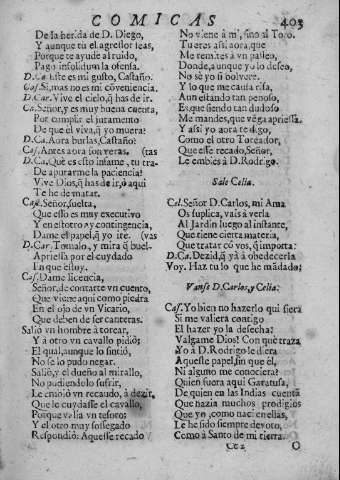 COMICAS 403
De la herida de D. Diego,
Y aunque tù el agressor seas,
Porque te ayude al ruido,
Pago insolidum la ofensa.
D.Ca. Este es mi gusto, Castaño.
Cas. Si, mas no es mi cõveniencia.
D.Car. Vive el cielo, q̃ has de ir.
Ca. Señor, y es muy buena cuenta,
Por cumplir el juramento
De que èl viva, q̃ yo muera?
D.Ca. Aora burlas, Castaño?
Cas. Antes aora son veras. (tas
D.Ca. Què es esto infame, tu tra-
De apurarme la paciencia?
Vive Dios, q̃ has de ir, ò aqui
Te he de matar.
Cas. Señor, suelta,
Que esso es muy executivo
Y en estotro ay contingencia,
Dame el papel, q̃ yo irè. (vas
D.Car. Tomalo, y mira q̃ buel-
Apriessa por el cuydado
En que estoy.
Cas. Dame licencia,
Señor, de contarte vn cuento,
Que viene aqui como piedra
En el ojo de vn Vicario,
Que deben de ser canteras.
Saliò vn hombre à torear,
Y à otro vn cavallo pidiò;
El qual, aunque lo sintiò,
No se lo pudo negar.
Saliò, y el dueño al mirallo,
No pudiendolo sufrir,
Le embiò vn recaudo, à dezir,
Que le cuydasse el cavallo,
Porque valia vn tesoro:
Y el otro muy sossegado
Respondiò: Aquesse recado
No viene à mi, sino al Toro.
Tu eres assi aora, que
Me remites à vn passeo,
Donde, aunque yo lo deseo,
No sè yo si bolverè.
Y lo que me causa risa,
Aun estando tan penoso,
Es, que siendo tan dudoso
Me mandes, que vẽga apriessa.
Y assi yo aora te digo,
Como el otro Toreador,
Que esse recado, Señor,
Le embies à D. Rodrigo.
Sale Celia.
Cel. Señor D. Carlos, mi Ama
Os suplica, vais à verla
Al Jardin luego al instante,
Que tiene cierta materia,
Que tratar cõ vos, q̃ importa:
D.Ca. Dezid, q̃ yà à obedecerla
Voy. Haz tu lo que he mãdado;
Vanse D. Carlos, y Celia.
Cas. Yo bien no hazerlo quisiera
Si me valiera contigo
El hazer yo la desecha:
Valgame Dios! Con què traza
Yo à D. Rodrigo le diera
Aqueste papel, sin que èl,
Ni alguno me conociera?
Quien fuera aqui Garatusa,
De quien en las Indias cuentã
Que hazia muchos prodigios
Que yo, como naci en ellas,
Le he sido siempre devoto,
Como à Santo de mi tierra.
Cc2 O